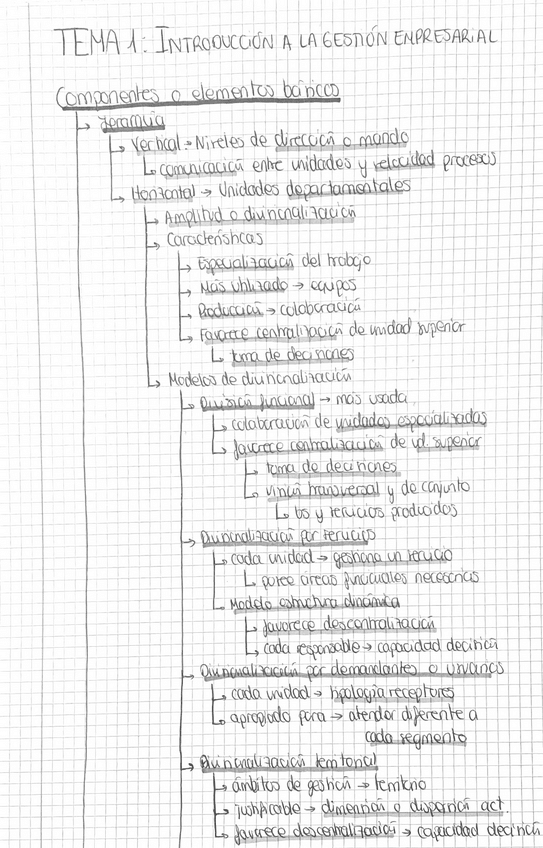 TEMA 1: INTRODUCCIÓN A LA GESTIÓN EMPRESARIAL
Componentes o elementos básicos
↳ Jerarquía
↳ Vertical → Niveles de dirección o mando
↳ comunicación entre unidades y velocidad procesos
↳ Horizontal → Unidades departamentales
↳ Amplitud o divisionalización
↳ Características
↳ Especialización del trabajo
↳ Más utilizado → equipos
↳ Producción → colaboración
↳ Favorece centralización de unidad superior
↳ toma de decisiones
↳ Modelos de divisionalización
↳ División funcional → más usada
↳ colaboración de unidades especializadas
↳ favorece centralización de ud. superior
↳ toma de decisiones
↳ visión transversal y de conjunto
↳ bs y servicios producidos
↳ Divisionalización por servicios
↳ cada unidad → gestiona un servicio
↳ posee áreas funcionales necesarias
↳ Modelo estructura dinámica
↳ favorece descentralización
↳ cada responsable → capacidad decisión
↳ Divisionalización por demandantes o usuarios
↳ cada unidad → tipología receptores
↳ apropiado para → atender diferente a
cada segmento
↳ Divisionalización territorial
↳ ámbitos de gestión → territorio
↳ justificable → dimensión o dispersión act.
↳ favorece descentralización → capacidad decisión